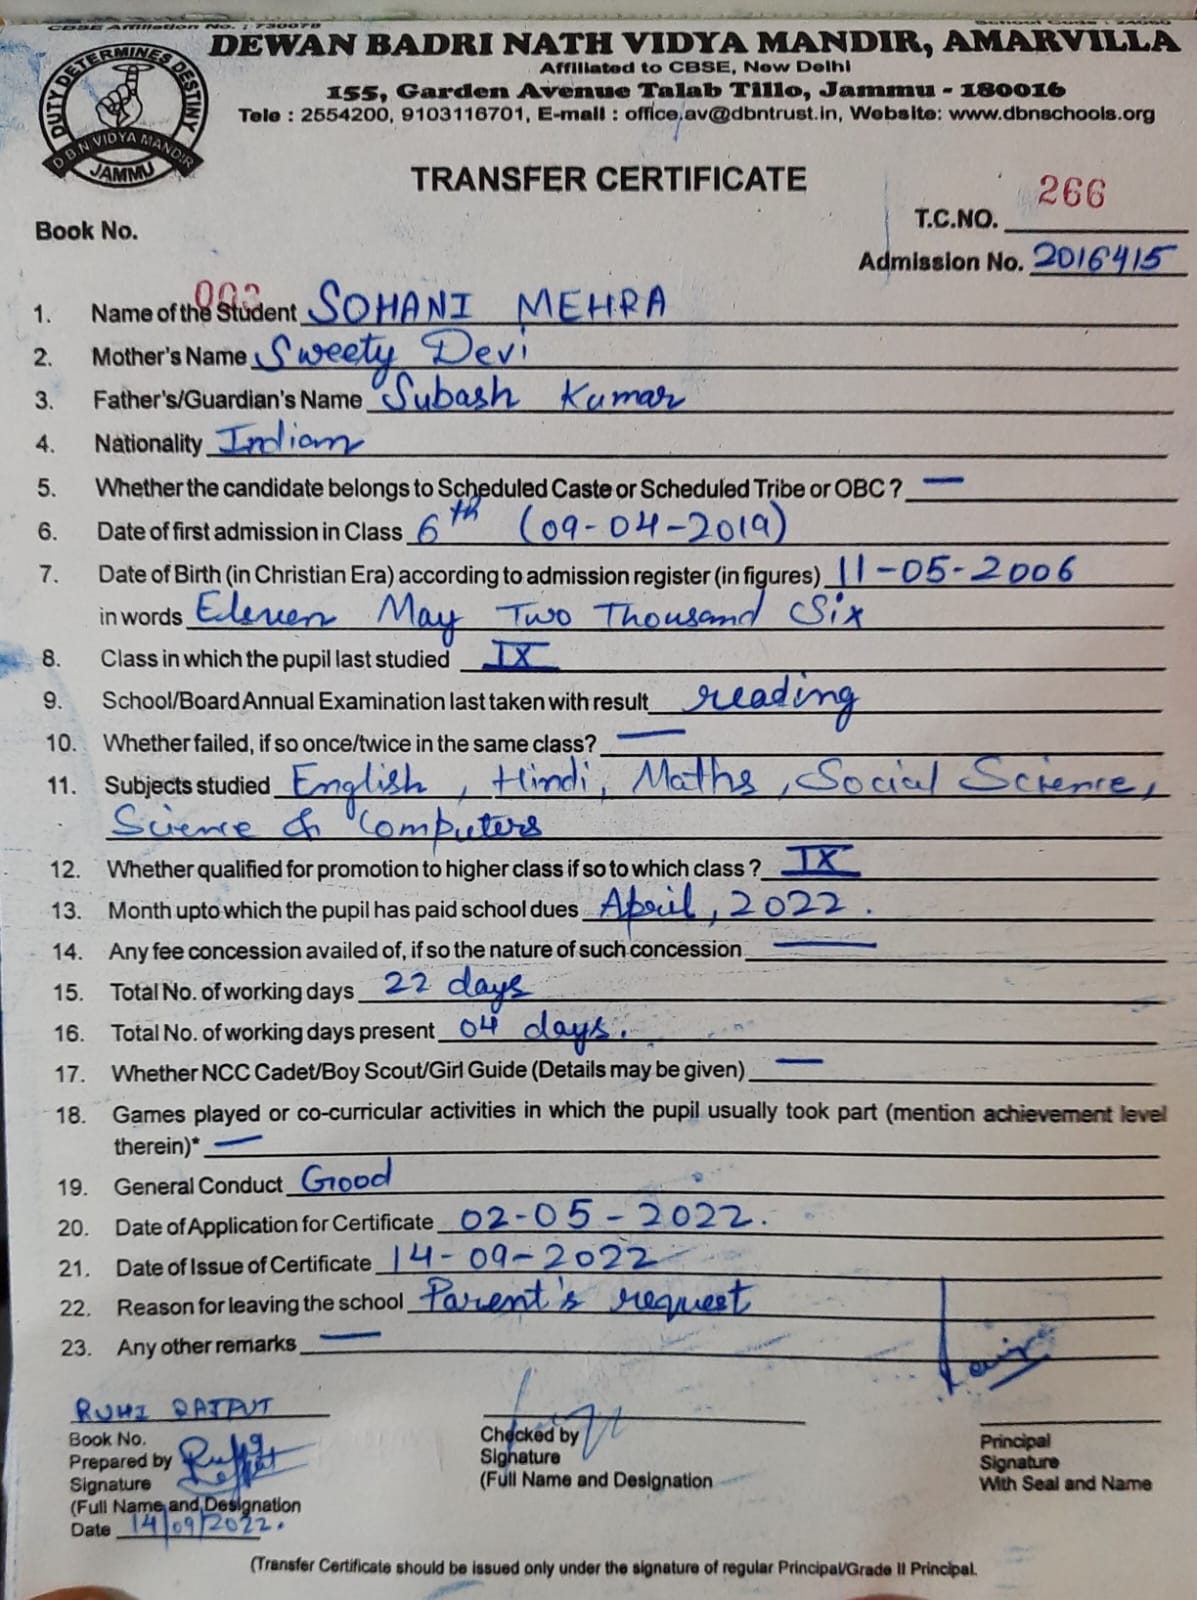 CBSE Affiliation No. : 730078 School Code : 24060
DEWAN BADRI NATH VIDYA MANDIR, AMARVILLA
Affiliated to CBSE, New Delhi
155, Garden Avenue Talab Tillo, Jammu - 180016
Tele : 2554200, 9103116701, E-mail : office.av@dbntrust.in, Website: www.dbnschools.org
DUTY DETERMINES DESTINY
D.B.N VIDYA MANDIR
JAMMU
TRANSFER CERTIFICATE
266
T.C.NO.
Book No.
Admission No. 2016415
003
1. Name of the Student SOHANI MEHRA
2. Mother's Name Sweety Devi
3. Father's/Guardian's Name Subash Kumar
4. Nationality Indian
5. Whether the candidate belongs to Scheduled Caste or Scheduled Tribe or OBC ? —
6. Date of first admission in Class 6th (09-04-2019)
7. Date of Birth (in Christian Era) according to admission register (in figures) 11-05-2006
in words Eleven May Two Thousand Six
8. Class in which the pupil last studied IX
9. School/Board Annual Examination last taken with result reading
10. Whether failed, if so once/twice in the same class? —
11. Subjects studied English, Hindi, Maths, Social Science,
Science & Computers
12. Whether qualified for promotion to higher class if so to which class ? IX
13. Month upto which the pupil has paid school dues April, 2022.
14. Any fee concession availed of, if so the nature of such concession —
15. Total No. of working days 22 days
16. Total No. of working days present 04 days.
17. Whether NCC Cadet/Boy Scout/Girl Guide (Details may be given) —
18. Games played or co-curricular activities in which the pupil usually took part (mention achievement level
therein)* —
19. General Conduct Good
20. Date of Application for Certificate 02-05-2022.
21. Date of Issue of Certificate 14-09-2022
22. Reason for leaving the school Parent's request
23. Any other remarks —
RUHI RAJPUT
Book No.
Prepared by
Signature
(Full Name and Designation
Date 14/09/2022.
Checked by
Signature
(Full Name and Designation
Principal
Signature
With Seal and Name
(Transfer Certificate should be issued only under the signature of regular Principal/Grade II Principal.